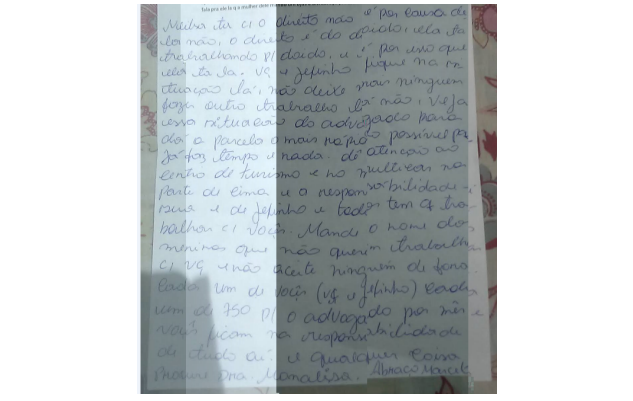 Fala pra ele lá q a mulher dele
Melba ta c/ o direito não é por causa de
loi não, o direito é do doido, ela ta
trabalhando p/ doido, e é por isso que
ela ta la. vç e Jefinho fique na si
tuação lá, não deixe mais ninguem
fazer outro trabalho lá não, veja
essa situação do advogado para
dá a parcela o mais rápido possível pq
já faz tempo e nada. dê atenção ao
centro de turismo e no multicor na
parte de cima e a responsabilidade é
sua e de Jefinho e todos tem q tra
balhar c/ voçês. Mande o nome dos
meninos que não querem trabalhar
c/ vç e não aceite ninguem de fora.
cada um de voçês (vç e Jefinho) cada
um dê 750 p/ o advogado por mês e
voçês ficam na responsabilidade
de tudo aí. e qualquer coisa
Procure Dra. Monalisa. Abraço